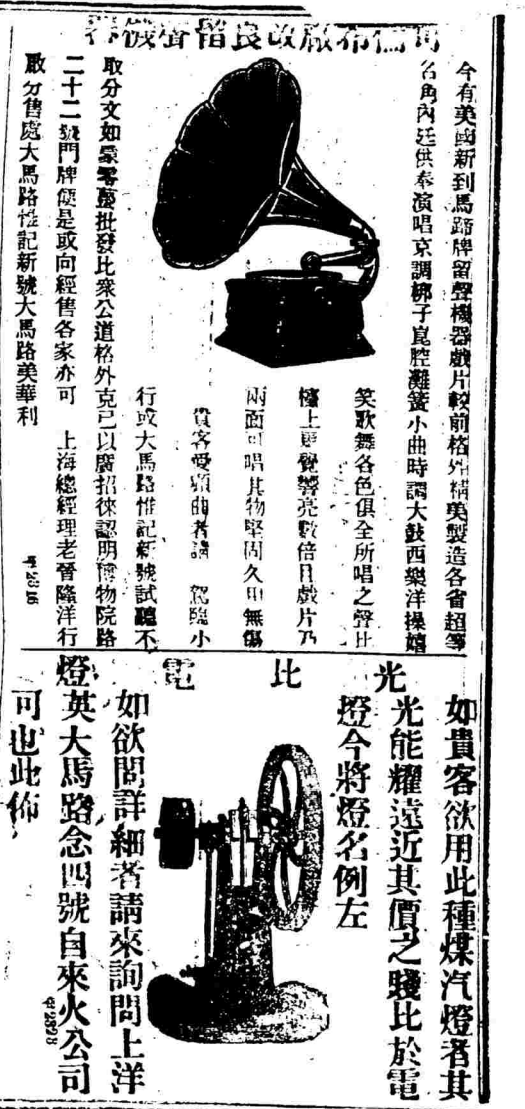 司偏布厰改良留聲機器
今有美國新到馬蹄牌留聲機器戲片較前格外精美製造各省超等
名角內廷供奉演唱京調梆子崑腔灘簧小曲時調大鼓西樂洋操嬉
笑歌舞各色俱全所唱之聲比
檯上更覺響亮數倍且戲片乃
兩面可唱其物堅固久用無傷
貴客愛顧曲者請 駕臨小
行或大馬路惟記新號試聽不
取分文如蒙零躉批發比衆公道格外克已以廣招徠認明博物院路
二十二號門牌便是或向經售各家亦可 上海總經理老晉隆洋行
敝分售處大馬路惟記新號大馬路美華利
光 比 電
如貴客欲用此種煤汽燈者其
光能耀遠近其價之賤比於電
燈今將燈名例左
如欲問詳細者請來詢問上洋
燈英大馬路念四號自來火公司
可也此佈